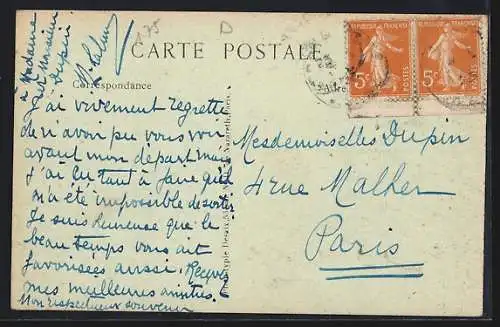 CARTE POSTALE
Correspondance
J'ai vivement regretté
de n'avoir pu vous voir
avant mon départ mais
j'ai eu tant à faire qu'il
m'a été impossible de sortir
Je suis heureuse que le
beau temps vous ait
favorisées aussi. Recevez
mes meilleures amitiés.
Mon respectueux souvenir
à Madame
et Monsieur
Dupin
REPUBLIQUE FRANÇAISE
5c POSTES
REPUBLIQUE FRANÇAISE
5c POSTES
Mesdemoiselles Dupin
4 rue Malher
Paris